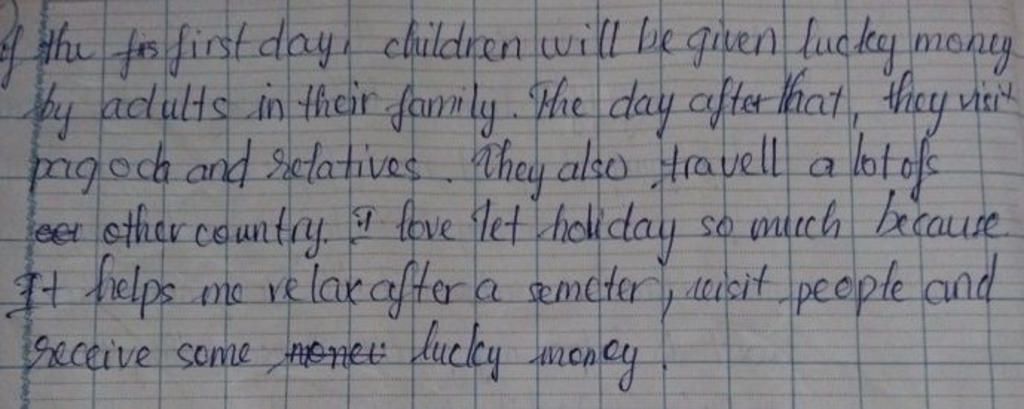 If the first day, children will be given lucky money
by adults in their family. The day after that, they visit
pagoda and relatives. They also travell a lot ofs
other country. I love Tet holiday so much because
It helps me relax after a semeter, visit people and
receive some lucky money.